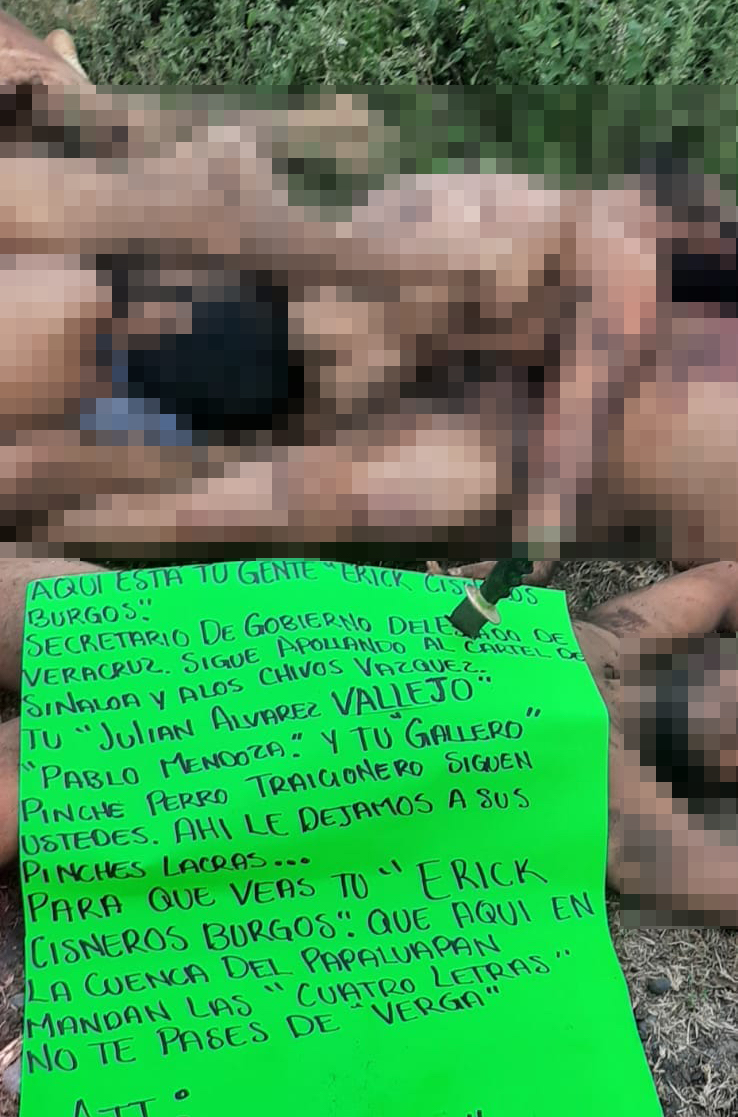 AQUI ESTA TU GENTE "ERICK
BURGOS".
SECRETARIO DE GOBIERNO DE
VERACRUZ. SIGUE APOLLANDO AL CARTEL DE
SINALOA Y ALOS CHIVOS VAZQUEZ.
TU "JULIAN ALVAREZ VALLEJO"
"PABLO MENDOZA." Y TU "GALLERO"
PINCHE PERRO TRAICIONERO SIGUEN
USTEDES. AHI LE DEJAMOS A SUS
PINCHES LACRAS...
PARA QUE VEAS TU "ERICK
CISNEROS BURGOS". QUE AQUI EN
LA CUENCA DEL PAPALUAPAN
MANDAN LAS "CUATRO LETRAS"
NO TE PASES DE "VERGA"
ATT: